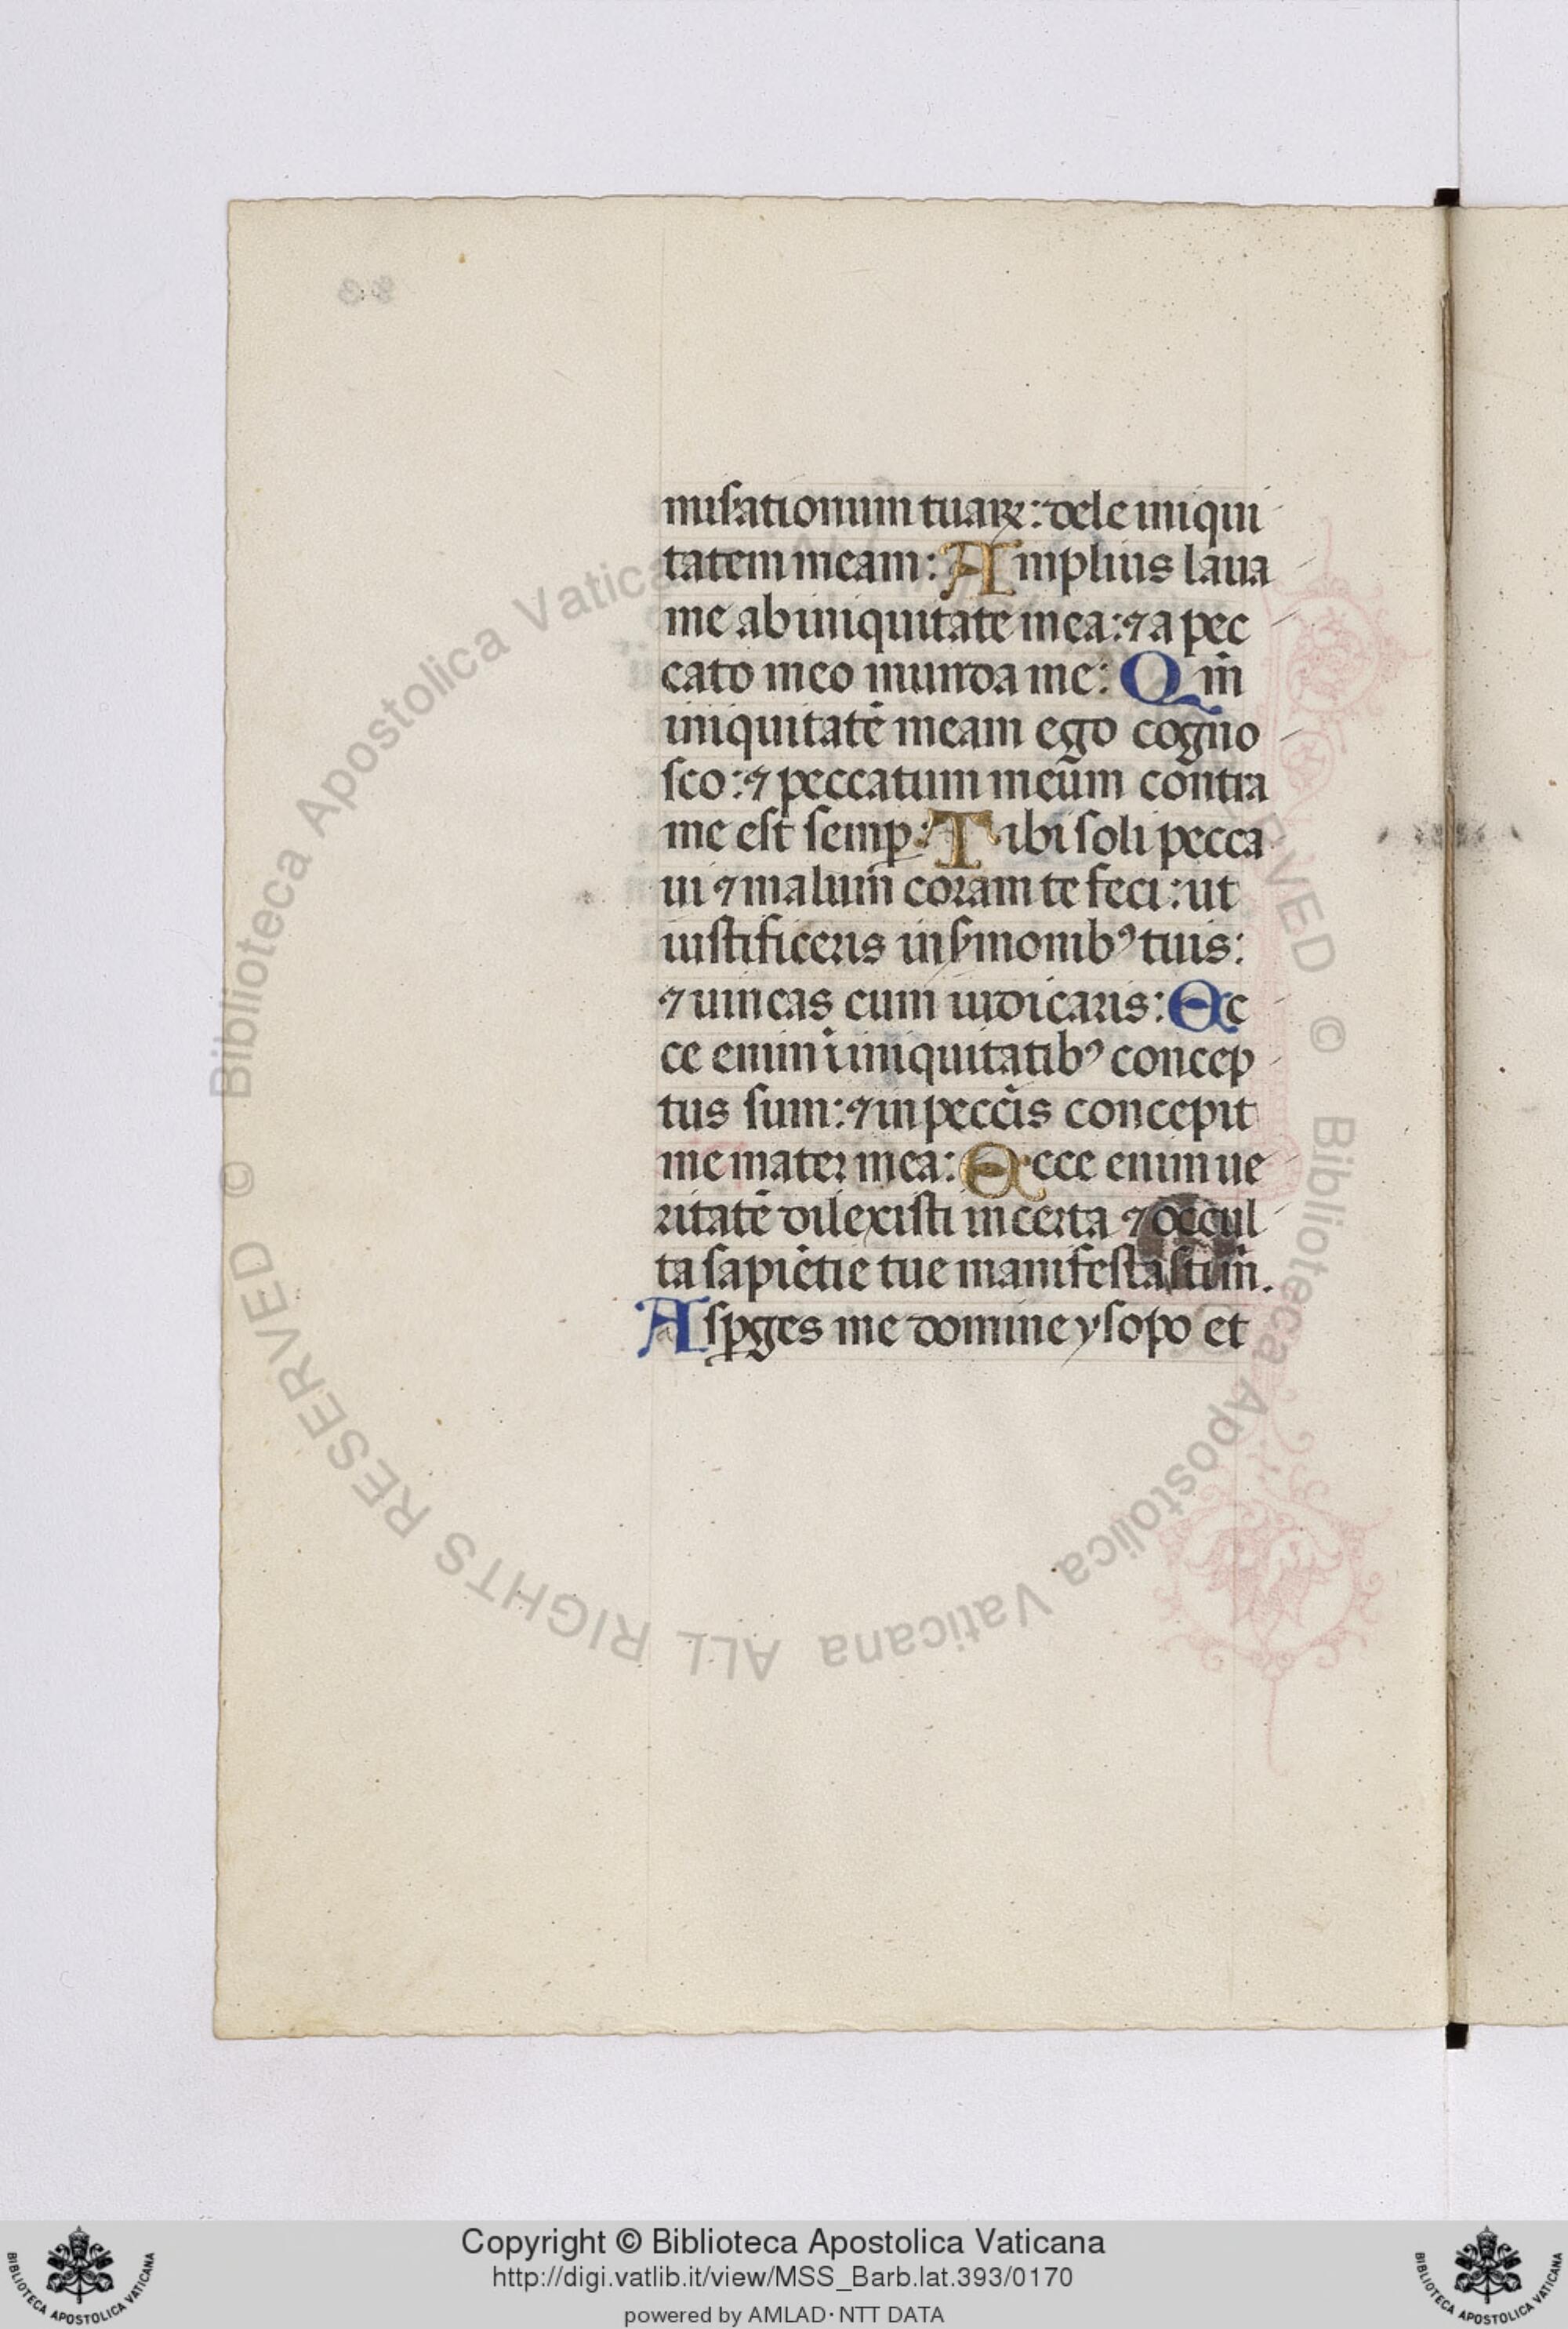 miſationum tuaꝝ: dele iniqui
tatem meam: Amplius laua
me ab iniquitate mea: ⁊ a pec
cato meo munda me: Qm̄
iniquitatē meam ego cogno
ſco: ⁊ peccatum meum contra
me eſt ſemꝑ: Tibi ſoli pecca
ui ⁊ malum coram te feci: ut
iuſtificeris in ẜmonibꝰ tuis:
⁊ uincas cum iudicaris: Ec
ce enim ī iniquitatibꝰ concep
tus ſum: ⁊ in pecc̄is concepit
me mater mea: Ecce enim ue
ritatē dilexiſti incerta ⁊ occul
ta ſapiētie tue manifeſtaſti m̄.
Aſꝑges me domine yſopo et
© Biblioteca Apostolica Vaticana ALL RIGHTS RESERVED © Biblioteca Apostolica Vatica
Copyright © Biblioteca Apostolica Vaticana
http://digi.vatlib.it/view/MSS_Barb.lat.393/0170
powered by AMLAD·NTT DATA
BIBLIOTECA APOSTOLICA VATICANA
BIBLIOTECA APOSTOLICA VATICANA